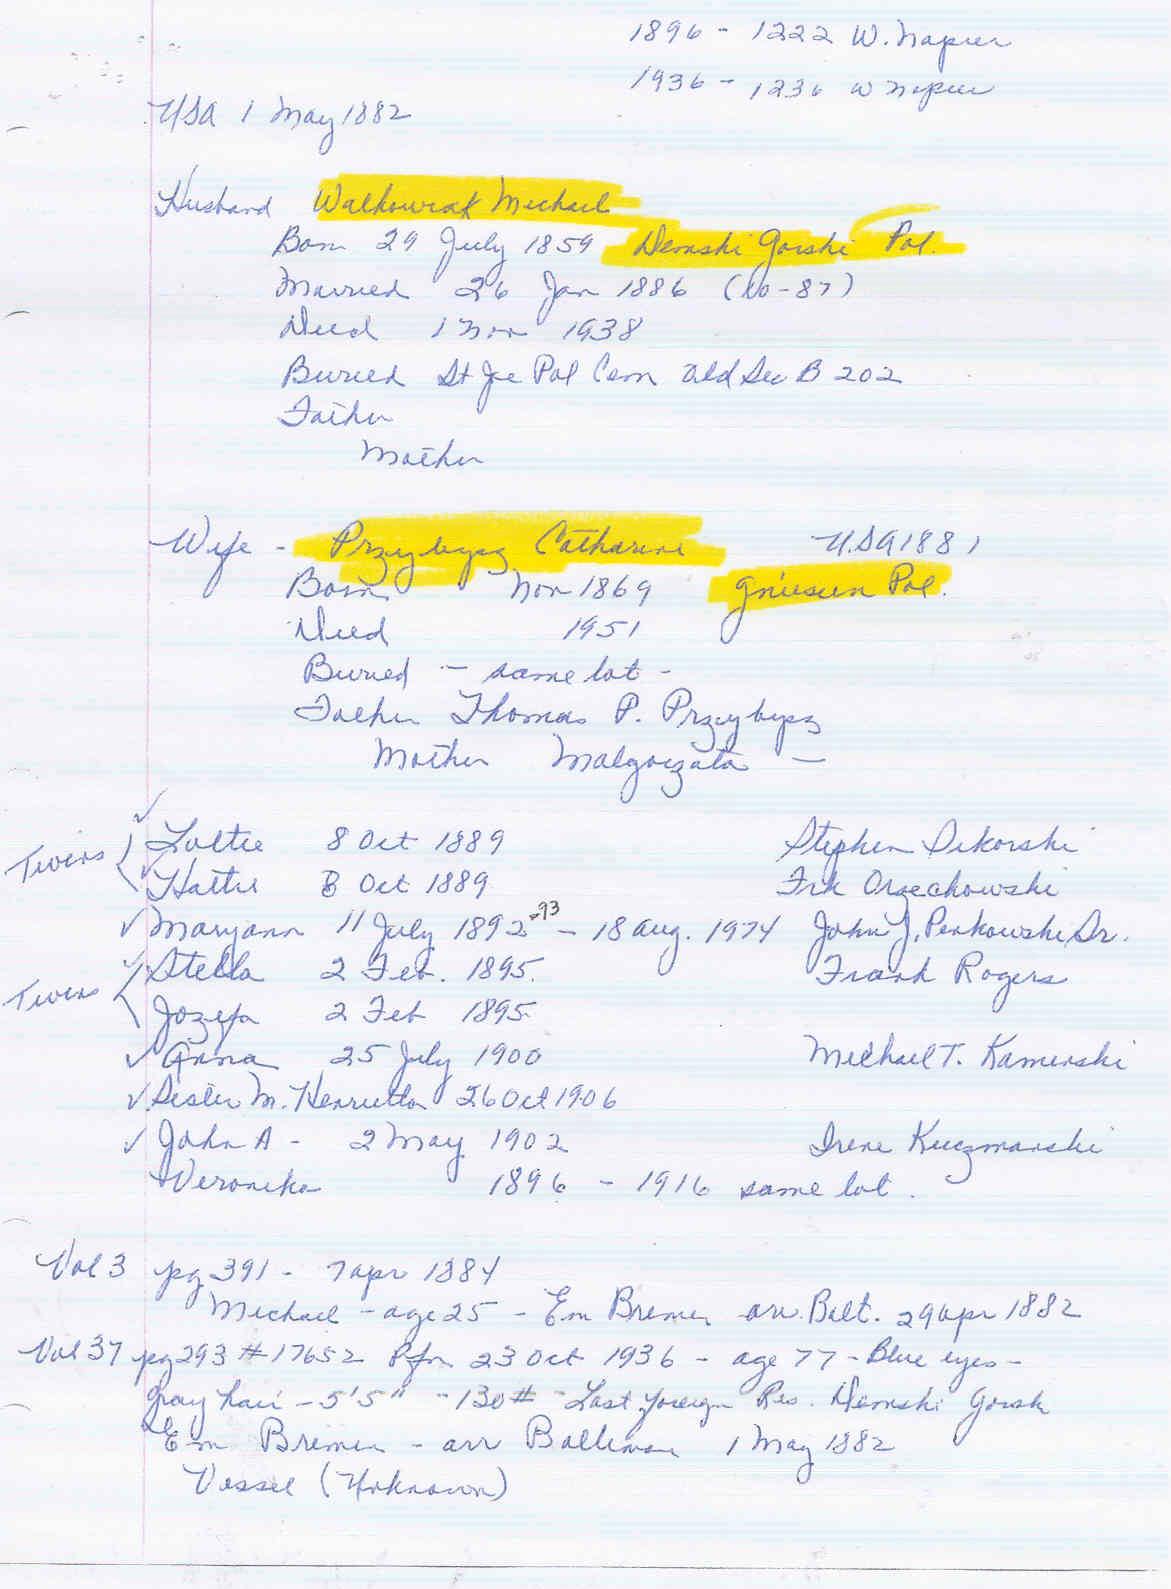 1896 - 1222 W. Napier
1936 - 1236 W Napier
USA 1 May 1882
Husband Walkowiak Michael
Born 29 July 1859 Demski Gorski Pol.
Married 26 Jan 1886 (No-87)
Died 1 Nov 1938
Buried St Joe Pol Cem Old Sec B 202
Father
Mother
Wife - Przybysz Catharine USA 1881
Born Nov 1869 Gniesen Pol.
Died 1951
Buried - same lot -
Father Thomas P. Przybysz
Mother Malgorzata -
Twins
Lottie 8 Oct 1889 Stephen Sikorski
Hattie 8 Oct 1889 Frk Orzechowski
Maryann 11 July 1892-93 - 18 Aug. 1974 John J. Penkowski Sr.
Twins
Stella 2 Feb. 1895. Frank Rogers
Jozefa 2 Feb 1895
Anna 25 July 1900 Michael T. Kamenski
Sister M. Henrietta 26 Oct 1906
John A - 2 May 1902 Irene Kuczmarski
Veronika 1896 - 1916 same lot.
Vol 3 pg 391 - 7 Apr 1884
Michael - age 25 - Em Bremen arr. Balt. 29 Apr 1882
Vol 37 pg 293 #17652 23 Oct 1936 - age 77 - Blue eyes -
Gray hair - 5'5" - 130# - Last foreign Res. Demski Gorsk
Em Bremen - arr Baltimore 1 May 1882
Vessel (Unknown)